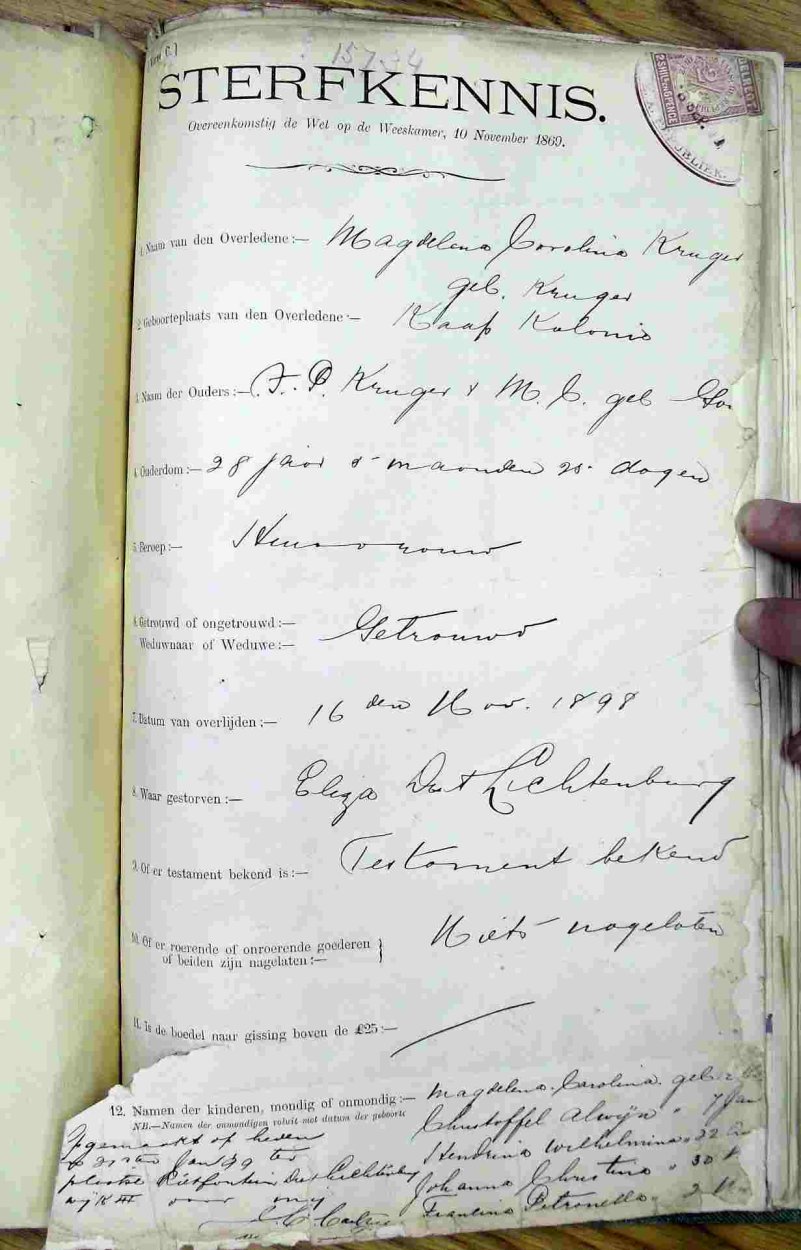 15734
STERFKENNIS.
Overeenkomstig de Wet op de Weeskamer, 10 November 1869.
1. Naam van den Overledene:— Magdelena Carolina Kruger
geb. Kruger
2. Geboorteplaats van den Overledene:— Kaap Kolonie
3. Naam der Ouders:— P. Kruger & M. C. geb
4. Ouderdom:— 28 jaar 5 maanden dagen
5. Beroep:— Huisvrouw
6. Getrouwd of ongetrouwd:— Getrouwd
Weduwnaar of Weduwe:—
7. Datum van overlijden:— 16 den Nov. 1898
8. Waar gestorven:— Eliza Dist Lichtenburg
9. Of er testament bekend is:— Testament bekend
10. Of er roerende of onroerende goederen
of beiden zijn nagelaten:— Niets nagelaten
11. Is de boedel naar gissing boven de £25:—
12. Namen der kinderen, mondig of onmondig:— Magdelena Carolina geb
NB.—Namen der onmondigen voluit met datum der geboorte
Christoffel Alwijn " 7 Jan
Hendrina Wilhelmina
Johanna Christina " 30
Francina Petronella
gemaakt op heden
Jan 99 ter
plaatse Rietfontein Dist Lichtenburg
wijk III voor mij